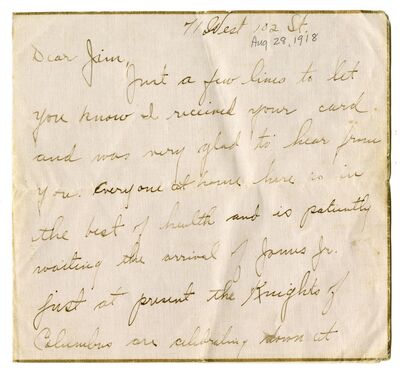 71 West 102 St.
Aug 29, 1918
Dear Jim,
Just a few lines to let
you know I received your card
and was very glad to hear from
you. Everyone at home here is in
the best of health and is patiently
waiting the arrival of James Jr.
just at present the Knights of
Columbus are celebrating down at